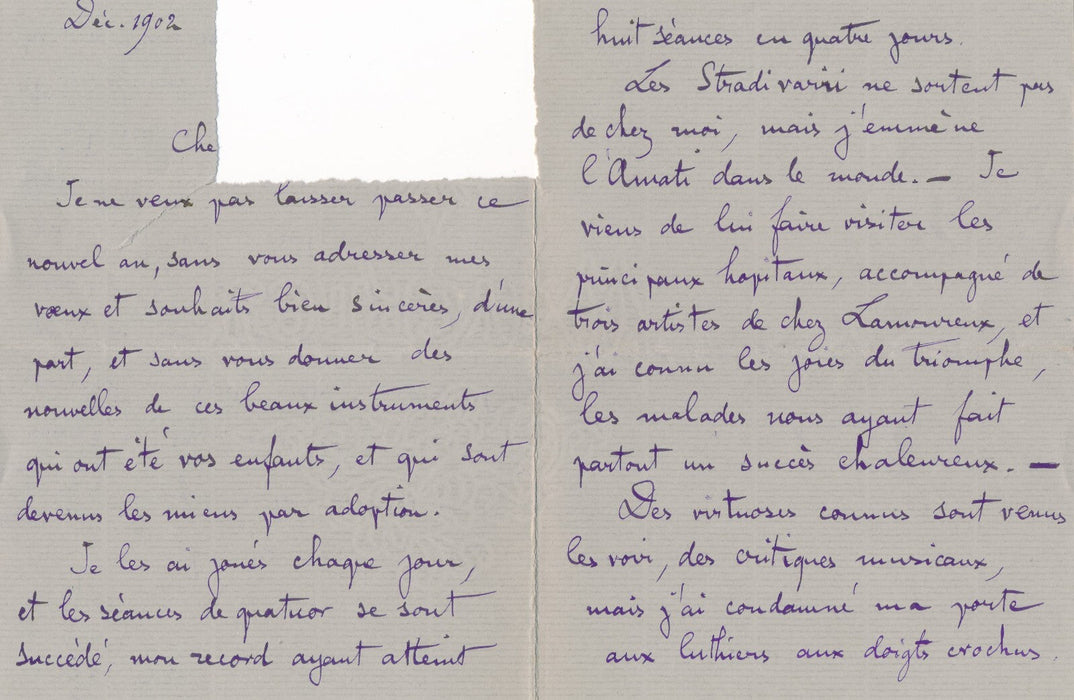 Déc. 1902
Che
Je ne veux pas laisser passer ce
nouvel an, sans vous adresser mes
vœux et souhaits bien sincères, d'une
part, et sans vous donner des
nouvelles de ces beaux instruments
qui ont été vos enfants, et qui sont
devenus les miens par adoption.
Je les ai joués chaque jour,
et les séances de quatuor se sont
succédé, mon record ayant atteint
huit séances en quatre jours.
Les Stradivarii ne sortent pas
de chez moi, mais j'emmène
l'Amati dans le monde. — Je
viens de lui faire visiter les
principaux hopitaux, accompagné de
trois artistes de chez Lamoureux, et
j'ai connu les joies du triomphe,
les malades nous ayant fait
partout un succès chaleureux. —
Des virtuoses connus sont venus
les voir, des critiques musicaux,
mais j'ai condamné ma porte
aux luthiers aux doigts crochus.